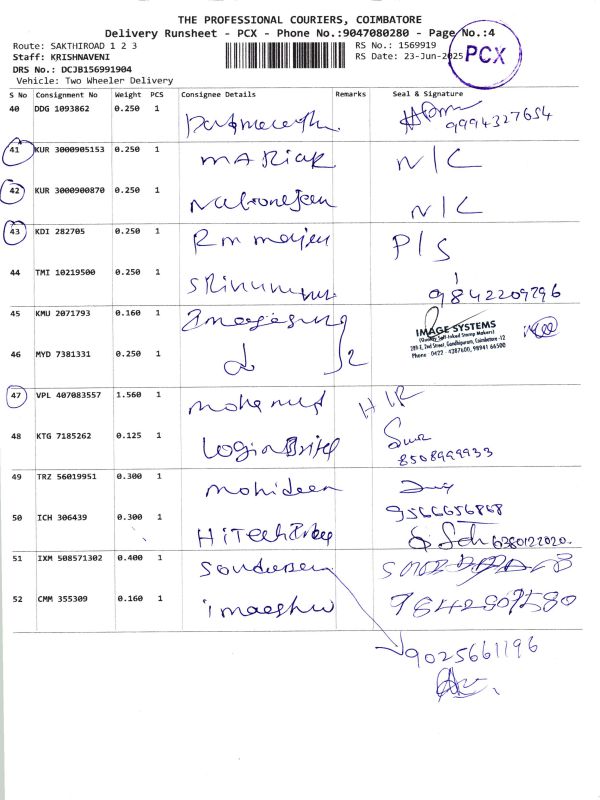 THE PROFESSIONAL COURIERS, COIMBATORE
Delivery Runsheet - PCX - Phone No.:9047080280 - Page No.:4
Route: SAKTHIROAD 1 2 3
RS No.: 1569919
Staff: KRISHNAVENI
RS Date: 23-Jun-2025
PCX
DRS No.: DCJB156991904
Vehicle: Two Wheeler Delivery
S No Consignment No Weight PCS Consignee Details Remarks Seal & Signature
40 DDG 1093862 0.250 1
9994327654
41 KUR 3000905153 0.250 1 N/C
42 KUR 3000900870 0.250 1 N/C
43 KDI 282705 0.250 1 P/S
44 TMI 10219500 0.250 1
9842209796
45 KMU 2071793 0.160 1
IMAGE SYSTEMS
(Quality Self-Inked Stamp Makers)
289 E, 2nd Street, Gandhipuram, Coimbatore -12
Phone : 0422 - 4387600, 98941 66500
46 MYD 7381331 0.250 1 2
47 VPL 407083557 1.560 1
48 KTG 7185262 0.125 1
8508999933
49 TRZ 56019951 0.300 1 mohideen
9566656868
50 ICH 306439 0.300 1 6380122020.
51 IXM 508571302 0.400 1
52 CMM 355309 0.160 1
9025661196